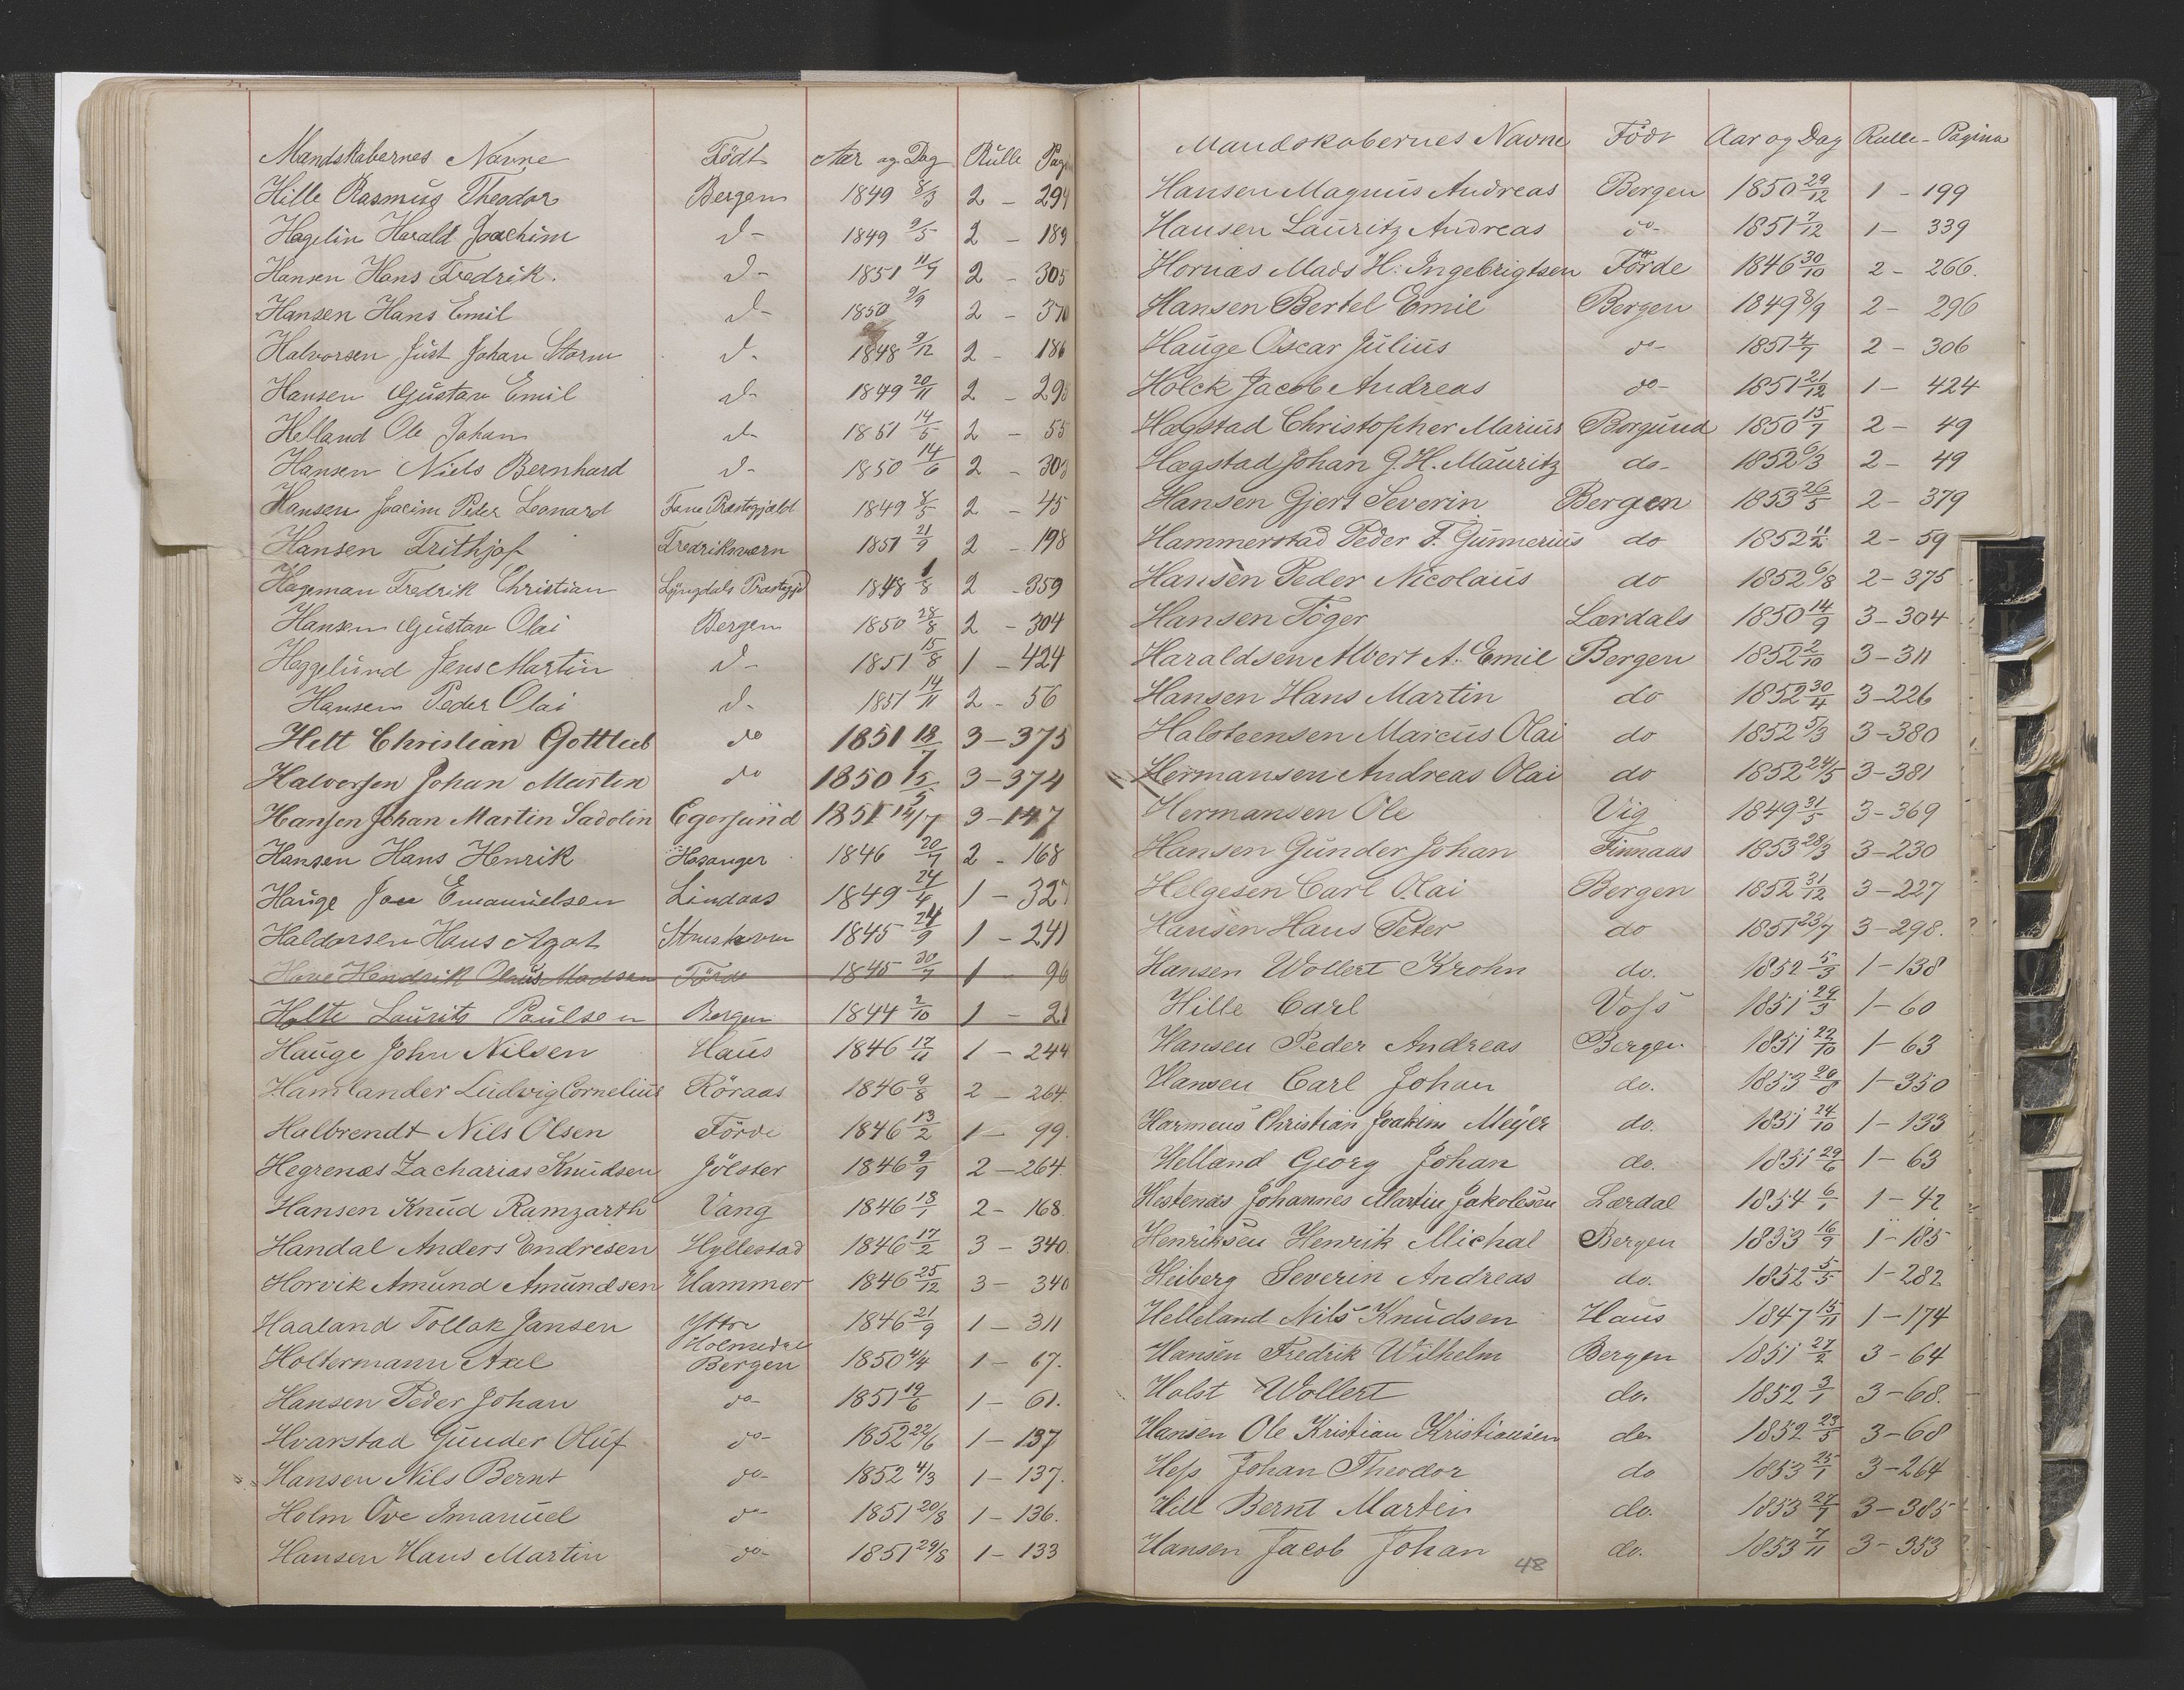 Mandskabernes Navne Födt Aar og Dag Rulle Pag
Hille Rasmus Theodor Bergen 1849 8/3 2 - 294
Hagelin Harald Joachim d- 1849 9/5 2 - 189
Hansen Hans Fredrik. d- 1851 11/7 2 - 305
Hansen Hans Emil d- 1850 9/9 2 - 370
Halvorsen Just Johan Storm d- 1848 9/12 2 - 186
Hansen Gustav Emil d- 1849 20/11 2 - 295
Helland Ole Johan d- 1851 14/5 2 - 55
Hansen Niels Bernhard d- 1850 14/6 2 - 303
Hansen Joacim Peder Leonard Fane Præstegjæld 1849 8/5 2 - 45
Hansen Frithjof Fredriksværn 1851 21/9 2 - 198
Hageman Fredrik Christian Lyngdals Præstegjd 1848 1/8 2 - 359
Hansen Gustav Olai Bergen 1850 28/8 2 - 304
Heggelund Jens Martin d- 1851 15/8 1 - 424
Hansen Peder Olai d- 1851 14/11 2 - 56
Hett Christian Gottlieb do 1851 18/7 3 - 375
Halvorsen Johan Martin do 1850 15/5 3 - 374
Hansen Johan Martin Sadolin Egersund 1851 14/7 3 - 147
Hansen Hans Henrik Hosanger 1846 20/7 2 - 168
Hauge Jon Emanuelsen Lindaas 1849 24/4 1 - 327
Haldorsen Hans Agot 1845 24/9 1 - 241
Hove Hendrik Olaus Madsen Förde 1845 30/7 1 - 96
Holte Laurits Paulsen Bergen 1844 2/10 1 - 21
Hauge John Nilsen Haus 1846 17/11 1 - 244
Hamlander Ludvig Cornelius Röraas 1846 9/8 2 - 264.
Halbrendt Nils Olsen Förde 1846 13/2 1 - 99.
Hegrenæs Zacharias Knudsen Jölster 1846 9/9 2 - 264.
Hansen Knud Ramzarth Vang 1846 18/1 2 - 168.
Handal Anders Endresen Hyllestad 1846 17/2 3 - 340.
Horvik Amund Amundsen Hammer 1846 25/12 3 - 340
Haaland Tollak Jansen Yttre Holmedal 1846 21/9 1 - 311
Holtermann Axel Bergen 1850 4/4 1 - 67.
Hansen Peder Johan do- 1851 19/6 1 - 61.
Hvarstad Gunder Oluf do- 1852 22/6 1 - 137
Hansen Nils Bernt do- 1852 4/3 1 - 137.
Holm Ove Imanuel do- 1851 20/8 1 - 136.
Hansen Hans Martin do- 1851 29/8 1 - 133
Mandskabernes Navne Födt Aar og Dag Rulle - Pagina
Hansen Magnus Andreas Bergen 1850 29/12 1 - 199
Hansen Lauritz Andreas do- 1851 7/12 1 - 339
Hornæs Mads H. Ingebrigtsen Förde 1846 30/10 2 - 266.
Hansen Bertel Emil Bergen 1849 8/9 2 - 296
Hauge Oscar Julius do- 1851 4/7 2 - 306
Holck Jacob Andreas do- 1851 21/12 1 - 424
Hægstad Christopher Marius Borgund 1850 15/7 2 - 49
Hægstad Johan G. H. Mauritz do- 1852 6/3 2 - 49
Hansen Gjert Severin Bergen 1853 26/5 2 - 379
Hammerstad Peder F. Gunnerius do 1852 11/2 2 - 59
Hansen Peder Nicolaus do 1852 6/8 2 - 375
Hansen Töger Lærdals 1850 14/9 3 - 304
Haraldsen Albert A. Emil Bergen 1852 2/10 3 - 311
Hansen Hans Martin do 1852 30/4 3 - 226
Halsteensen Marcus Olai do 1852 5/3 3 - 380
Hermansen Andreas Olai do 1852 24/5 3 - 381
Hermansen Ole Vig 1849 31/5 3 - 369
Hansen Gunder Johan Finnaas 1853 28/3 3 - 230
Helgesen Carl Olai Bergen 1852 31/12 3 - 227
Hansen Hans Peter do 1851 23/7 3 - 298.
Hansen Wollert Krohn do. 1852 5/3 1 - 138
Hille Carl Voss 1851 29/3 1 - 60
Hansen Peder Andreas Bergen 1851 22/10 1 - 63
Hansen Carl Johan do. 1853 20/8 1 - 350
Harmens Christian Joakim Meyer do. 1851 24/10 1 - 133
Helland Georg Johan do. 1851 29/6 1 - 63
Hestenæs Johannes Martin Jakobsen Lærdal 1854 6/1 1 - 42
Henriksen Henrik Michal Bergen 1853 16/9 1 - 185
Heiberg Severin Andreas do. 1852 5/5 1 - 282
Helleland Nils Knudsen Haus 1847 15/11 1 - 174
Hansen Fredrik Wilhelm Bergen 1851 27/2 3 - 64
Holst Wollert do. 1852 3/1 3 - 68.
Hansen Ole Kristian Kristiansen do 1852 23/5 3 - 68
Hess Johan Theodor do 1853 25/1 3 - 264
Hill Bernt Martin do. 1853 27/7 3 - 385
Hansen Jacob Johan do. 1853 7/11 3 - 353
48
J
K